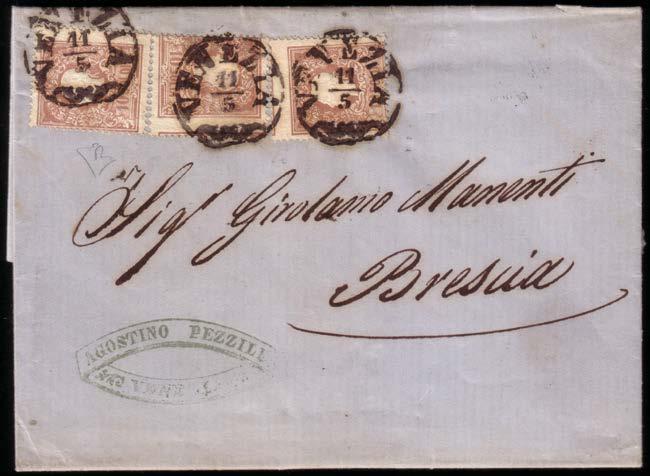 VENEZIA
11
5
VENEZIA
11
5
VENEZIA
11
5
Sigr Girolamo Manenti
Brescia
AGOSTINO PEZZILI